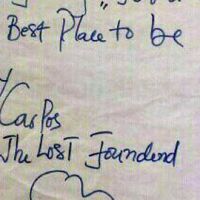 Best Place to be
Carlos
The Lost Foundend